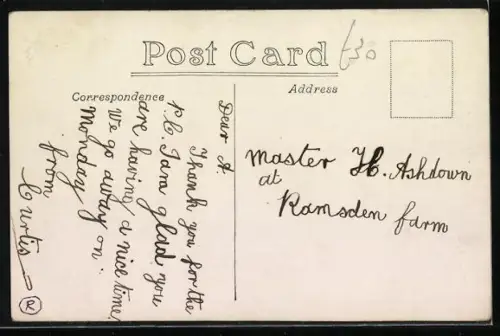 Post Card
£30
Correspondence
Address
Dear A.
Thank you for the
P.C. I am glad you
are having a nice time,
we go away on
Monday
from
Curtis
Master H. Ashdown
at
Ramsden farm
R